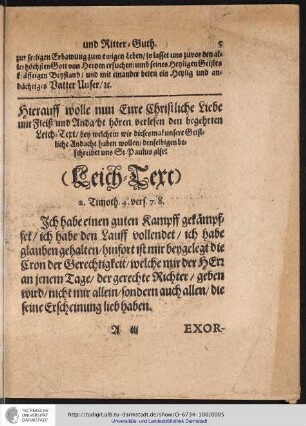 und Ritter-Guth. 5
zur seeligen Erbawung zum ewigen Leben/ so lasset uns zuvor den al-
lerhöchsten Gott von Hertzen ersuchen umb seines Heyligen Geistes
kräfftigen Beystand/ und mit einander beten ein Heylig und an-
dächtiges Vatter Unser/ ꝛc.
Hierauff wolle nun Eure Christliche Liebe
mit Fleiß und Andacht hören verlesen den begehrten
Leich-Text/ bey welchem wir diesesmal unsere Geist-
liche Andacht haben wollen/ denselbigen be-
schreibet uns St. Paulus also:
(Leich-Text)
2. Timoth. 4. vers. 7. 8.
Ich habe einen guten Kampff gekämpf-
fet/ ich habe den Lauff vollendet/ ich habe
glauben gehalten/ hinfort ist mir beygelegt die
Cron der Gerechtigkeit/ welche mir der HErr
an jenem Tage/ der gerechte Richter/ geben
wird/ nicht mir allein/ sondern auch allen/ die
seine Erscheinung lieb haben.
A iij EXOR-
TECHNISCHE
UNIVERSITÄT
DARMSTADT
http://tudigit.ulb.tu-darmstadt.de/show/O-6734-100/0005
Universitäts- und Landesbibliothek Darmstadt